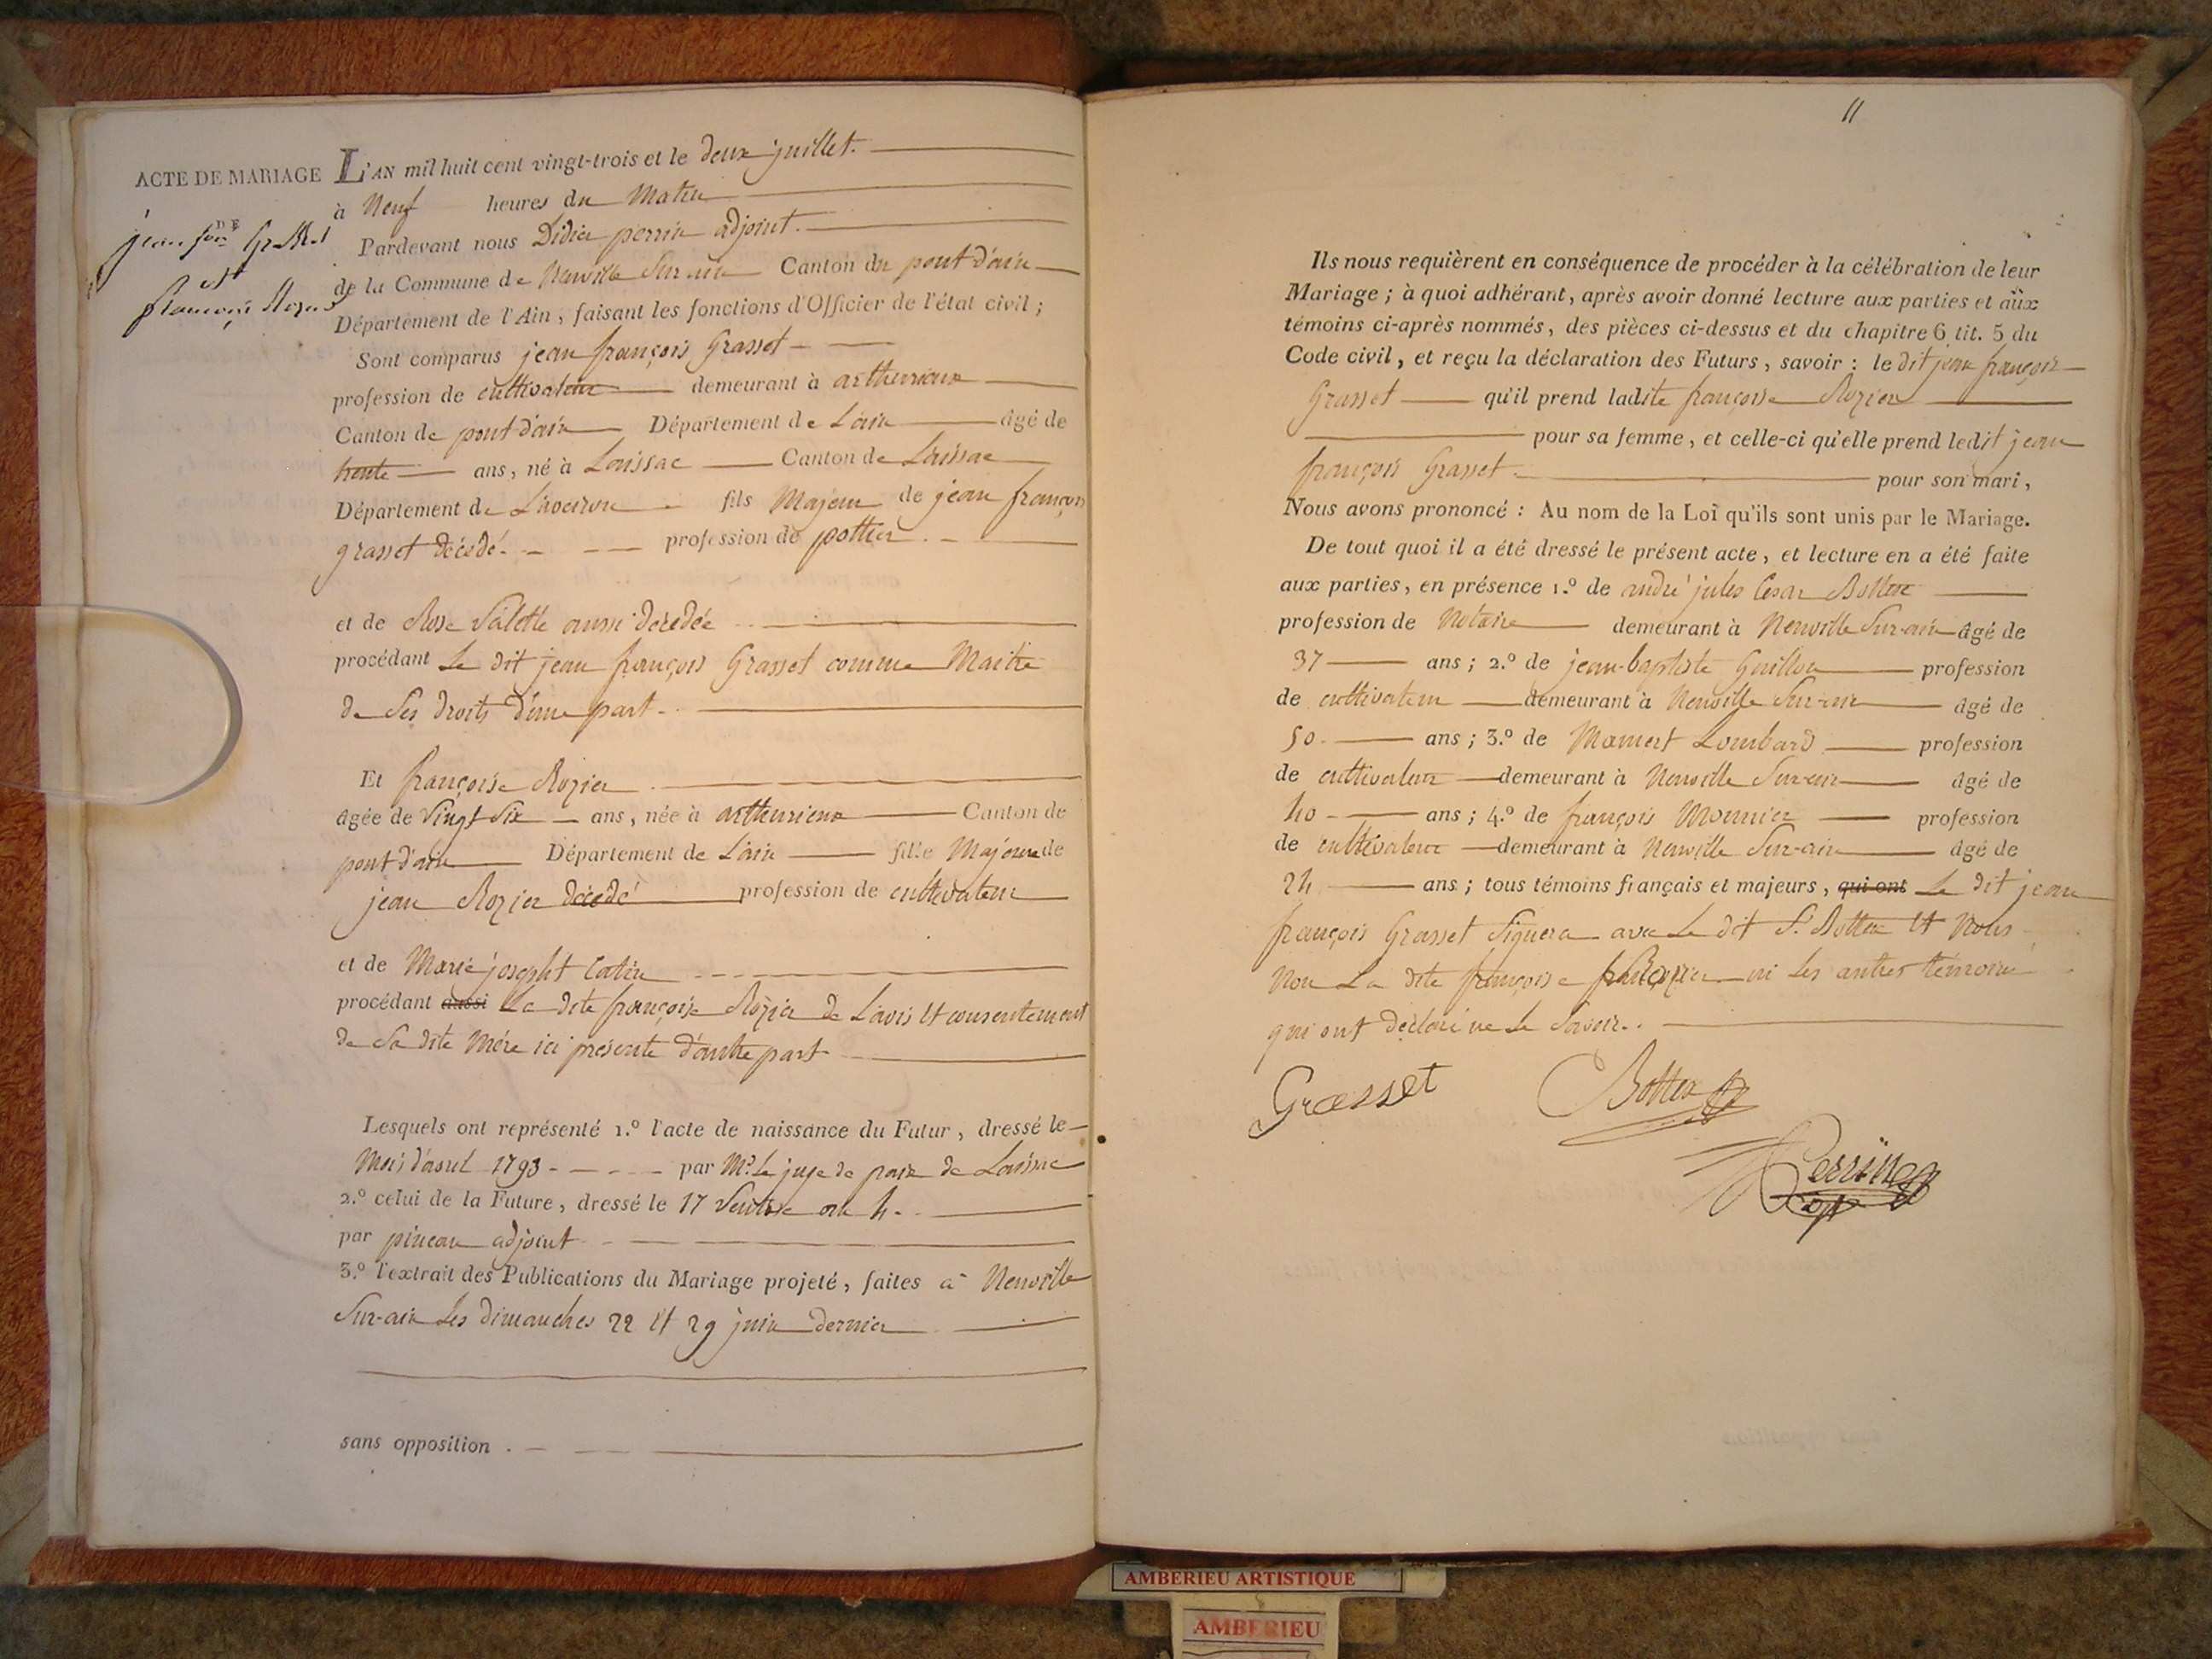 ACTE DE MARIAGE
DE
jean fois Grasset
et
françoise Rozier
L'AN mil huit cent vingt-trois et le deux juillet.
à Neuf heures du Matin
Pardevant nous Didier perrin adjoint.
de la Commune de Neuville Sur-ain Canton du pont d'ain
Département de l'Ain, faisant les fonctions d'Officier de l'état civil ;
Sont comparus jean françois Grasset
profession de cultivateur demeurant à arthurieux
Canton de pont d'ain Département de L'ain âgé de
trente ans, né à Laissac Canton de Laissac
Département de L'aveiron fils Majeur de jean françois
grasset décédé. profession de pottier.
et de Rose Valette aussi décédée
procédant Le dit jean françois Grasset comme Maitre
de Ses droits d'une part.
Et françoise Rozier
âgée de Vingt Six ans, née à arthurieux Canton de
pont d'ain Département de L'ain fille Majeure de
jean Rozier décédé profession de cultivateur
et de Marie josepht Catin
procédant aussi La dite françoise Rozier de L'avis et consentement
de Sa dite Mére ici présente d'autre part
Lesquels ont représenté 1.º l'acte de naissance du Futur, dressé le
Mois d'avril 1793 par Mr. Le juge de paix de Laissac
2.º celui de la Future, dressé le 17 Ventose an 4.
par pineau adjoint
3.º l'extrait des Publications du Mariage projeté, faites à Neuville
Sur-ain Les dimanches 22 et 29 juin dernier
sans opposition.
11
Ils nous requièrent en conséquence de procéder à la célébration de leur
Mariage ; à quoi adhérant, après avoir donné lecture aux parties et aux
témoins ci-après nommés, des pièces ci-dessus et du chapitre 6 tit. 5 du
Code civil, et reçu la déclaration des Futurs, savoir : le dit jean françois
Grasset qu'il prend ladite françoise Rozier
pour sa femme, et celle-ci qu'elle prend ledit jean
françois Grasset pour son mari,
Nous avons prononcé : Au nom de la Loi qu'ils sont unis par le Mariage.
De tout quoi il a été dressé le présent acte, et lecture en a été faite
aux parties, en présence 1.º de andré jules César Bottex
profession de Notaire demeurant à Neuville Sur-ain âgé de
37 ans ; 2.º de jean-baptiste Guillon profession
de cultivateur demeurant à Neuville Sur-ain âgé de
50 ans ; 3.º de Mamert Lombard profession
de cultivateur demeurant à Neuville Sur-ain âgé de
40 ans ; 4.º de françois Monnier profession
de cultivateur demeurant à Neuville Sur-ain âgé de
24 ans ; tous témoins français et majeurs, qui ont Le dit jean
françois Grasset Signera avec Le dit S. Bottex et Nous
Non La dite françoise Rozier ni Les autres témoins
qui ont déclaré ne Le Savoir.
Grasset
Bottex
Perrin
adj
AMBERIEU ARTISTIQUE
AMBERIEU